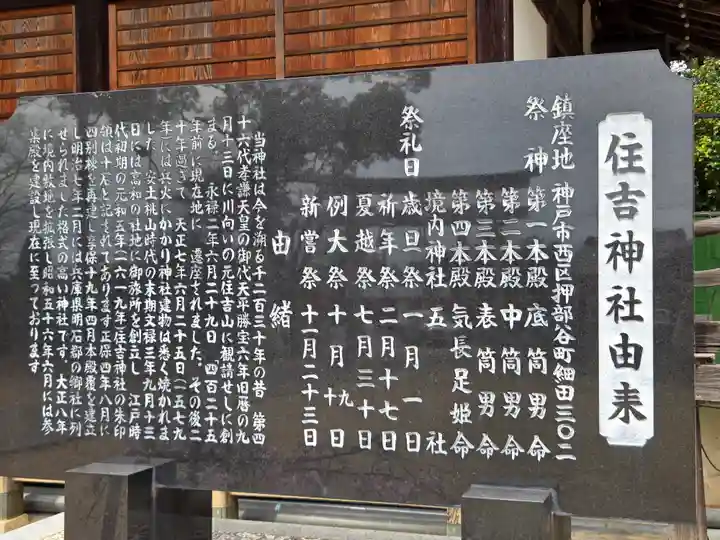 住吉神社由来
鎮座地 神戸市西区押部谷町細田三〇二
祭神 第一本殿 底筒男命
第二本殿 中筒男命
第三本殿 表筒男命
第四本殿 気長足姫命
境内神社 五社
祭礼日 歳旦祭 一月一日
祈年祭 二月十七日
夏越祭 七月三十日
例大祭 十月十九日
新嘗祭 十一月二十三日
由緒
当神社は今を溯る千二百三十年の昔 第四
十六代孝謙天皇の御代天平勝宝六年旧暦の九
月十三日に川向いの元住吉山に観請せしに創
まる 永禄二年六月二十九日「四百二十五
年前に現在地に 遷座されました。その後二
十年過ぎて 天正七年六月二十五日(一五七九
年)には兵火にかかり神社建物は悉く焼かれま
した 安土桃山時代の末期文禄三年九月十三
日には高和の社地に御旅所を創立し 江戸時
代初期の元和五年(一六一九年)住吉神社の朱印
領は十石と記されております正保四年八月に
四別棟を再建し享保十九年四月本殿覆を建立
し明治七年二月には兵庫県明石郡の郷社に列
せられました格式の高い神社です。大正八年
に境内敷地を拡張し昭和五十六年六月には参
集殿を建設し現在に至っております